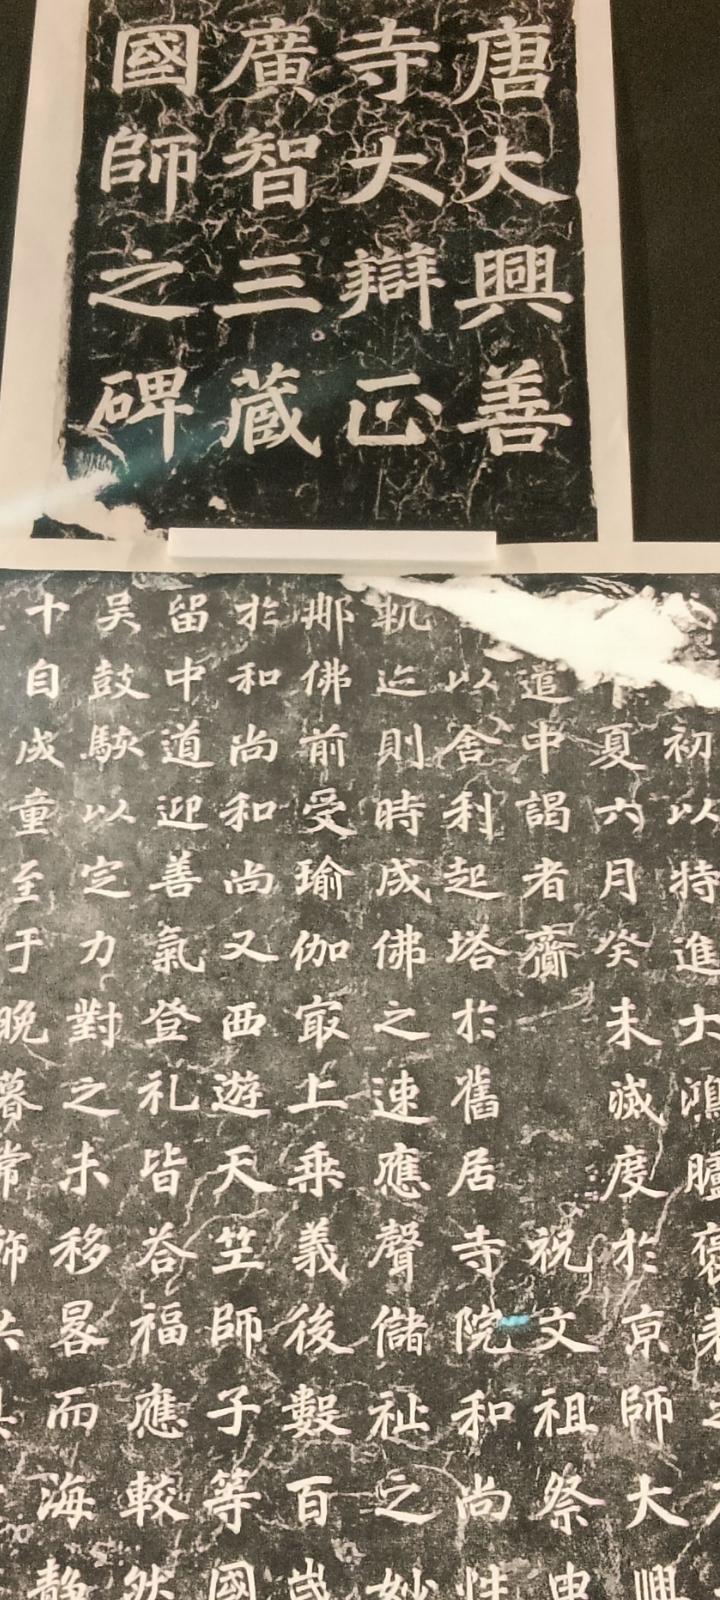 唐大興善
寺大辯正
廣智三藏
國師之碑
初以特進大鴻臚褒
夏六月癸未滅度於京師大興
遣中謁者齎祝文祖祭申
以舍利起塔於舊居寺院和尚性
軌迹則時成佛之速應聲儲祉之妙
那佛前受瑜伽㝡上乘義後數百歲
於和尚和尚又西遊天竺師子等國
留中道迎善氣登礼皆答福應較然
吴鼓駭以定力對之未移晷而海静
十自成童至于晚暮常飾共具